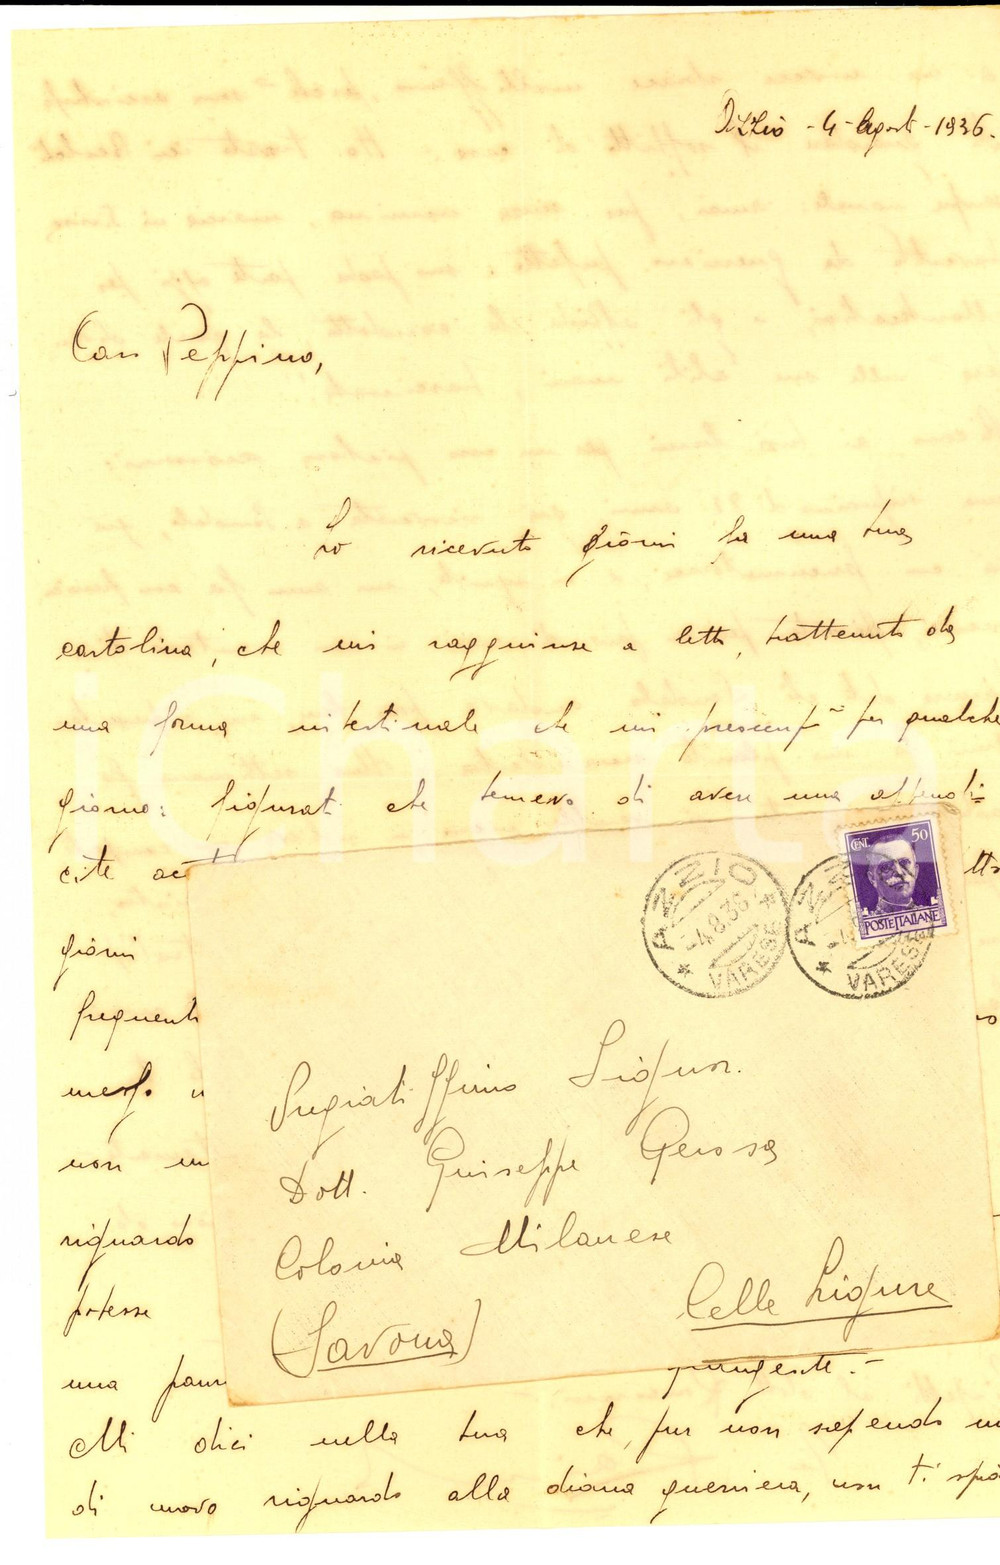 Azzio - 4 - Agosto - 1936.
Caro Peppino,
Ho ricevuto giorni fa una tua
cartolina, che mi raggiunse a letto, trattenuto da
una forma intestinale che mi preoccupò per qualche
giorno: figurati che temevo di avere una appendi=
cite
giorni
frequenti
non
riguardo
potesse
una
pungente.-
Mi dici nella tua che, pur non sapendo
di nuovo riguardo alla diana guerriera, non ti
AZZIO
-4.8.36
VARESE
AZZIO
VARESE
CENT. 50
POSTE ITALIANE
Pregiatissimo Signor.
Dott. Giuseppe Gerosa
Colonia Milanese
Celle Ligure
(Savona)
iCharta